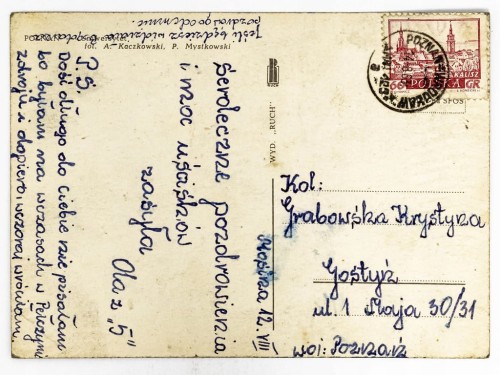 Jeśli będziesz widziała
pozdraw go ode mnie.
POZNAŃ
fot. A. Kaczkowski, P. Mystkowski
P.S.
Dość długo do Ciebie nie pisałam
bo byłam na wczasach w Połczynie
Zdroju i dopiero wczoraj wróciłam.
Serdeczne pozdrowienia
i moc uścisków
zasyła
Ola z „5"
RUCH
WYD. „RUCH"
Mosina 12.VIII
POZNAŃ
KALISZ
60 POLSKA GR
Kol:
Grabowska Krystyna
Gostyń
ul. 1 Maja 30/31
woj: Poznań